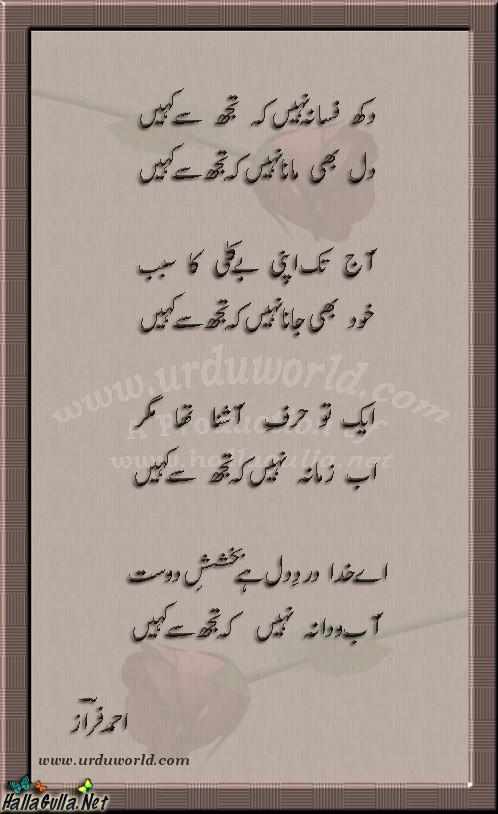 دکھ فسانہ نہیں کہ تجھ سے کہیں
دل بھی مانا نہیں کہ تجھ سے کہیں
آج تک اپنی بے کلی کا سبب
خود بھی جانا نہیں کہ تجھ سے کہیں
ایک تو حرفِ آشنا تھا مگر
اب زمانہ نہیں کہ تجھ سے کہیں
اے خدا دردِ دل ہے بخششِ دوست
آب و دانہ نہیں کہ تجھ سے کہیں
احمد فراز
www.urduworld.com
A Production of
www.hallagulla.net
www.urduworld.com
HallaGulla.Net